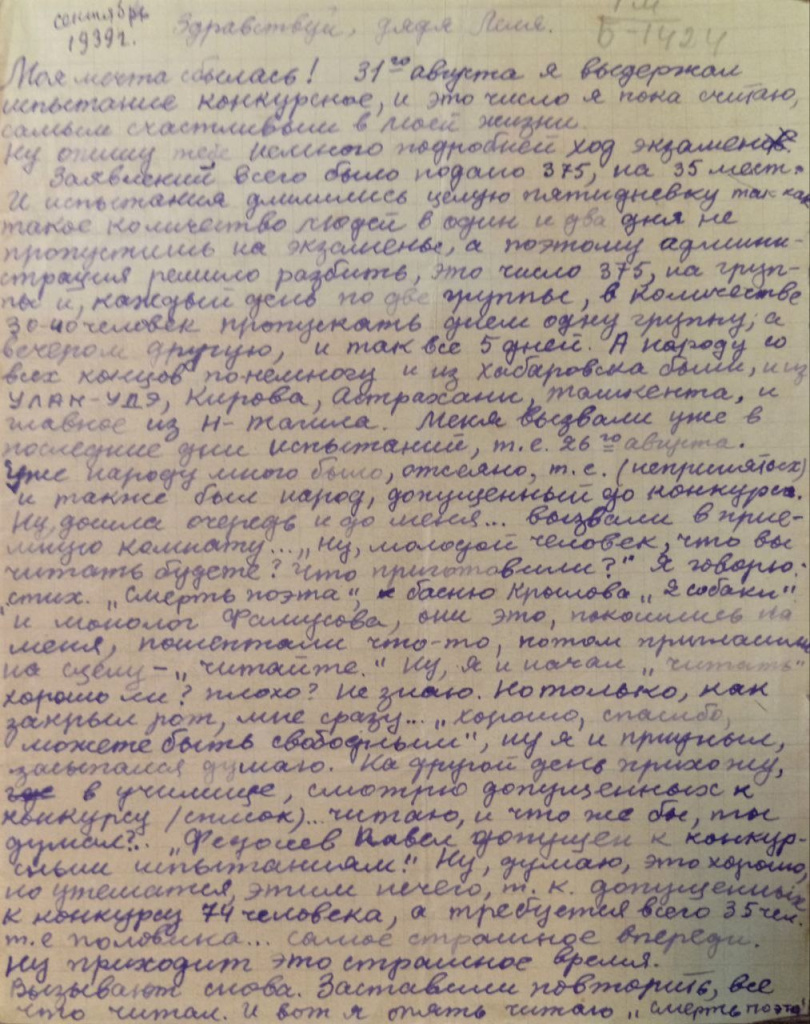 сентябрь
1939 г.
Здравствуй, дядя Леля.
ГМ
Б-1424
Моя мечта сбылась! 31го августа я выдержал
испытание конкурсное, и это число я пока считаю,
самым счастливым в моей жизни.
Ну опишу тебе немного подробней ход экзаменов.
Заявлений всего было подано 375, на 35 мест.
И испытания длились целую пятидневку так как
такое количество людей в один и два дня не
пропустишь на экзамены, а поэтому админи-
страция решило разбить, это число 375, на груп-
пы и, каждый день по две группы, в количестве
30-40 человек пропускать днем одну группу, а
вечером другую, и так все 5 дней. А народу со
всех концов понемногу и из Хабаровска были, и из
УЛАН-УДЭ, Кирова, Астрахани, Ташкента, и
главное из Н-Тагила. Меня вызвали уже в
последние дни испытаний, т.е. 26го августа.
Уже народу много было, отсеяно, т.е. (непринятых)
и также был народ, допущенный до конкурса.
Ну, дошла очередь и до меня... вызвали в прие-
мную комнату... „Ну, молодой человек, что вы
читать будете? Что приготовили?" Я говорю:
стих. „Смерть поэта", басню Крылова „2 собаки"
и монолог Фамусова, они это, покосились на
меня, пошептали что-то, потом пригласили
на сцену - „читайте." Ну, я и начал „читать"
хорошо ли? плохо? Не знаю. Но только, как
закрыл рот, мне сразу... „хорошо, спасибо,
можете быть свободным", ну я и приуныл,
засыпался думаю. На другой день прихожу,
в училище, смотрю допущенных к
конкурсу (список)... читаю, и что же бы, ты
думал?.. „Феколев Павел допущен к конкур-
сным испытаниям!" Ну, думаю, это хорошо,
но утешатся, этим нечего, т.к. допущенных
к конкурсу 74 человека, а требуется всего 35 чел.
т.е половина... самое страшное впереди.
Ну приходит это страшное время.
Вызывают снова. Заставили повторить, все
что читал. И вот я опять читаю „Смерть поэта"